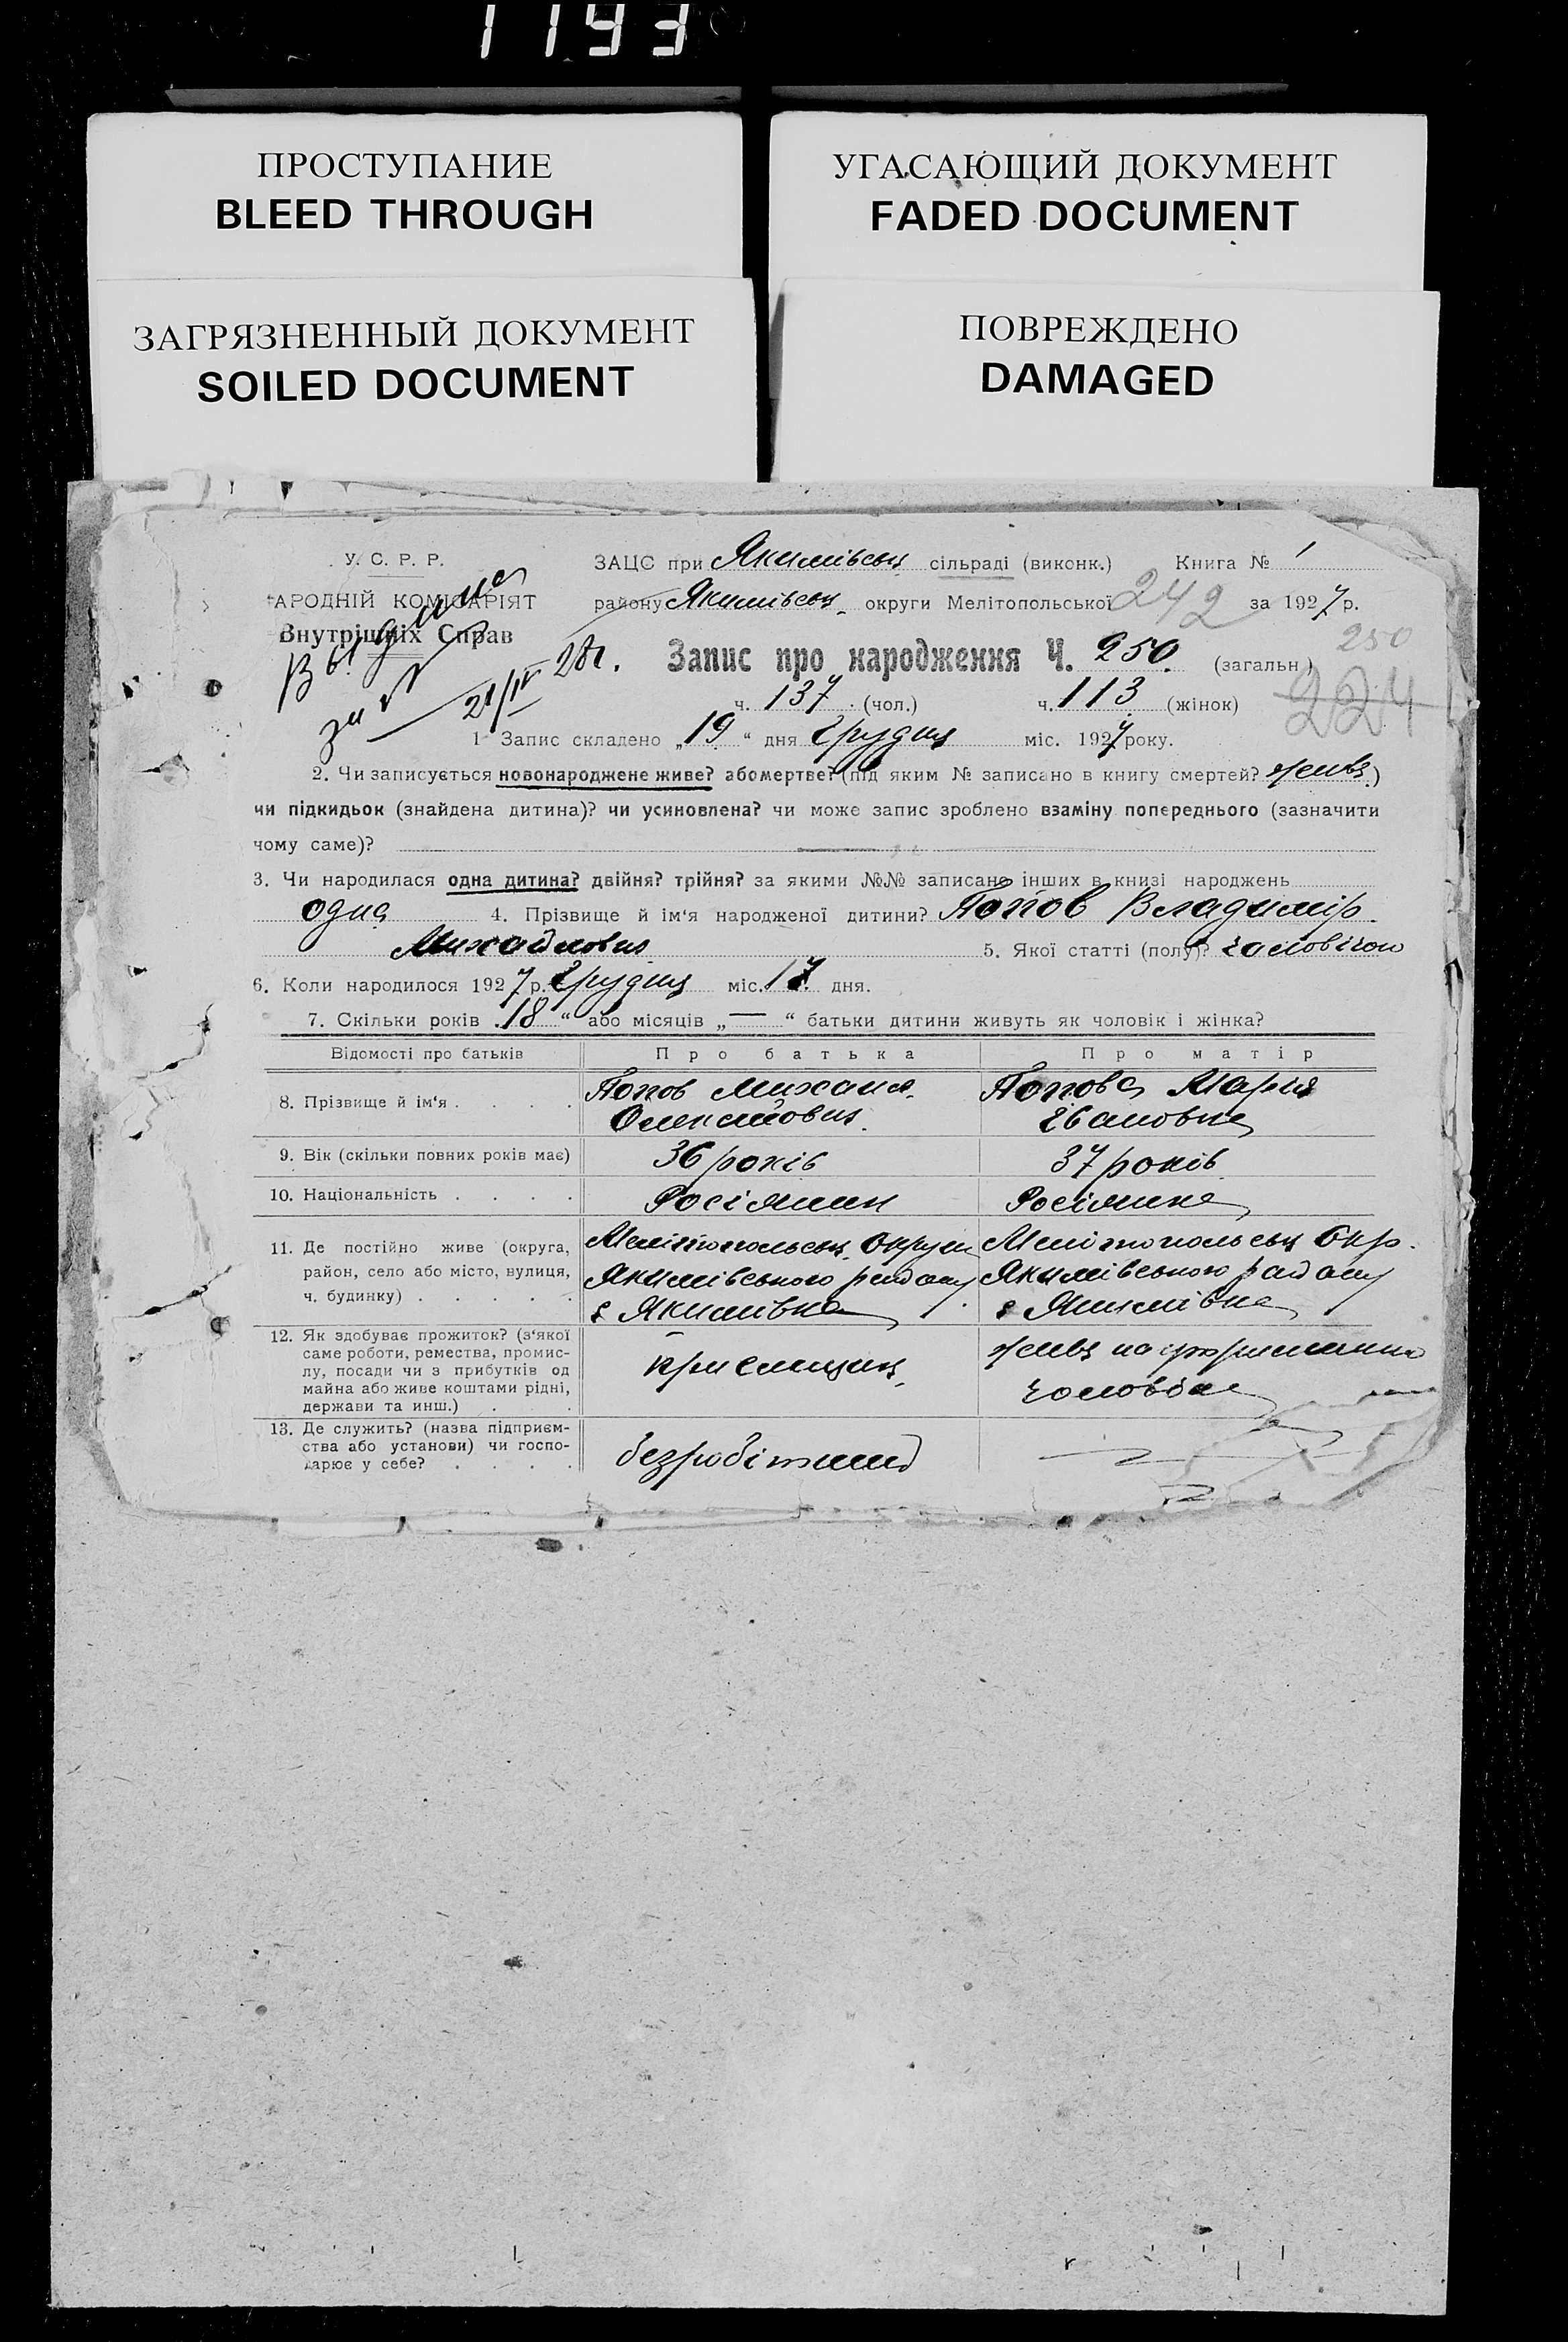 1193
ПРОСТУПАНИЕ
BLEED THROUGH
УГАСАЮЩИЙ ДОКУМЕНТ
FADED DOCUMENT
ЗАГРЯЗНЕННЫЙ ДОКУМЕНТ
SOILED DOCUMENT
ПОВРЕЖДЕНО
DAMAGED
У. С. Р. Р.
АРОДНІЙ КОМІСАРІЯТ
Внутрішніх Справ
21/IV 28г.
ЗАЦС при Якимівськ. сільраді (виконк.) Книга № 1
району Якимівськ. округи Мелітопольської 242 за 1927 р.
250
Запис про народження Ч. 250. (загальн.)
ч. 137 (чол.) ч. 113 (жінок) 224
1 Запис складено „19“ дня Грудня міс. 1927 року.
2. Чи записується новонароджене живе? або мертве? (під яким № записано в книгу смертей? живе)
чи підкидьок (знайдена дитина)? чи усиновлена? чи може запис зроблено взаміну попереднього (зазначити
чому саме)?
3. Чи народилася одна дитина? двійня? трійня? за якими №№ записано інших в книзі народжень
одна 4. Прізвище й ім‘я народженої дитини? Попов Владимір
Михайлович 5. Якої статті (полу)? чоловічої
6. Коли народилося 1927 р. Грудня міс. 17 дня.
7. Скільки років „18“ або місяців „—“ батьки дитини живуть як чоловік і жінка?
Відомості про батьків Про батька Про матір
8. Прізвище й ім‘я . . . . Попов Михаил Олексійович Попова Марія Івановна
9. Вік (скільки повних років має) 36 років 37 років
10. Національність . . . . Росіянин Росіянка
11. Де постійно живе (округа, Мелітопольськ. Округи Мелітопольськ Окр.
район, село або місто, вулиця, Якимівського району Якимівського району
ч. будинку) . . . . . с Якимівка с Якимівка
12. Як здобуває прожиток? (з‘якої
саме роботи, ремества, промис-
лу, посади чи з прибутків од
майна або живе коштами рідні,
держави та инш.) . .
живе на
чоловіка
13. Де служить? (назва підприєм-
ства або установи) чи госпо-
дарює у себе? . . . .
безробітний